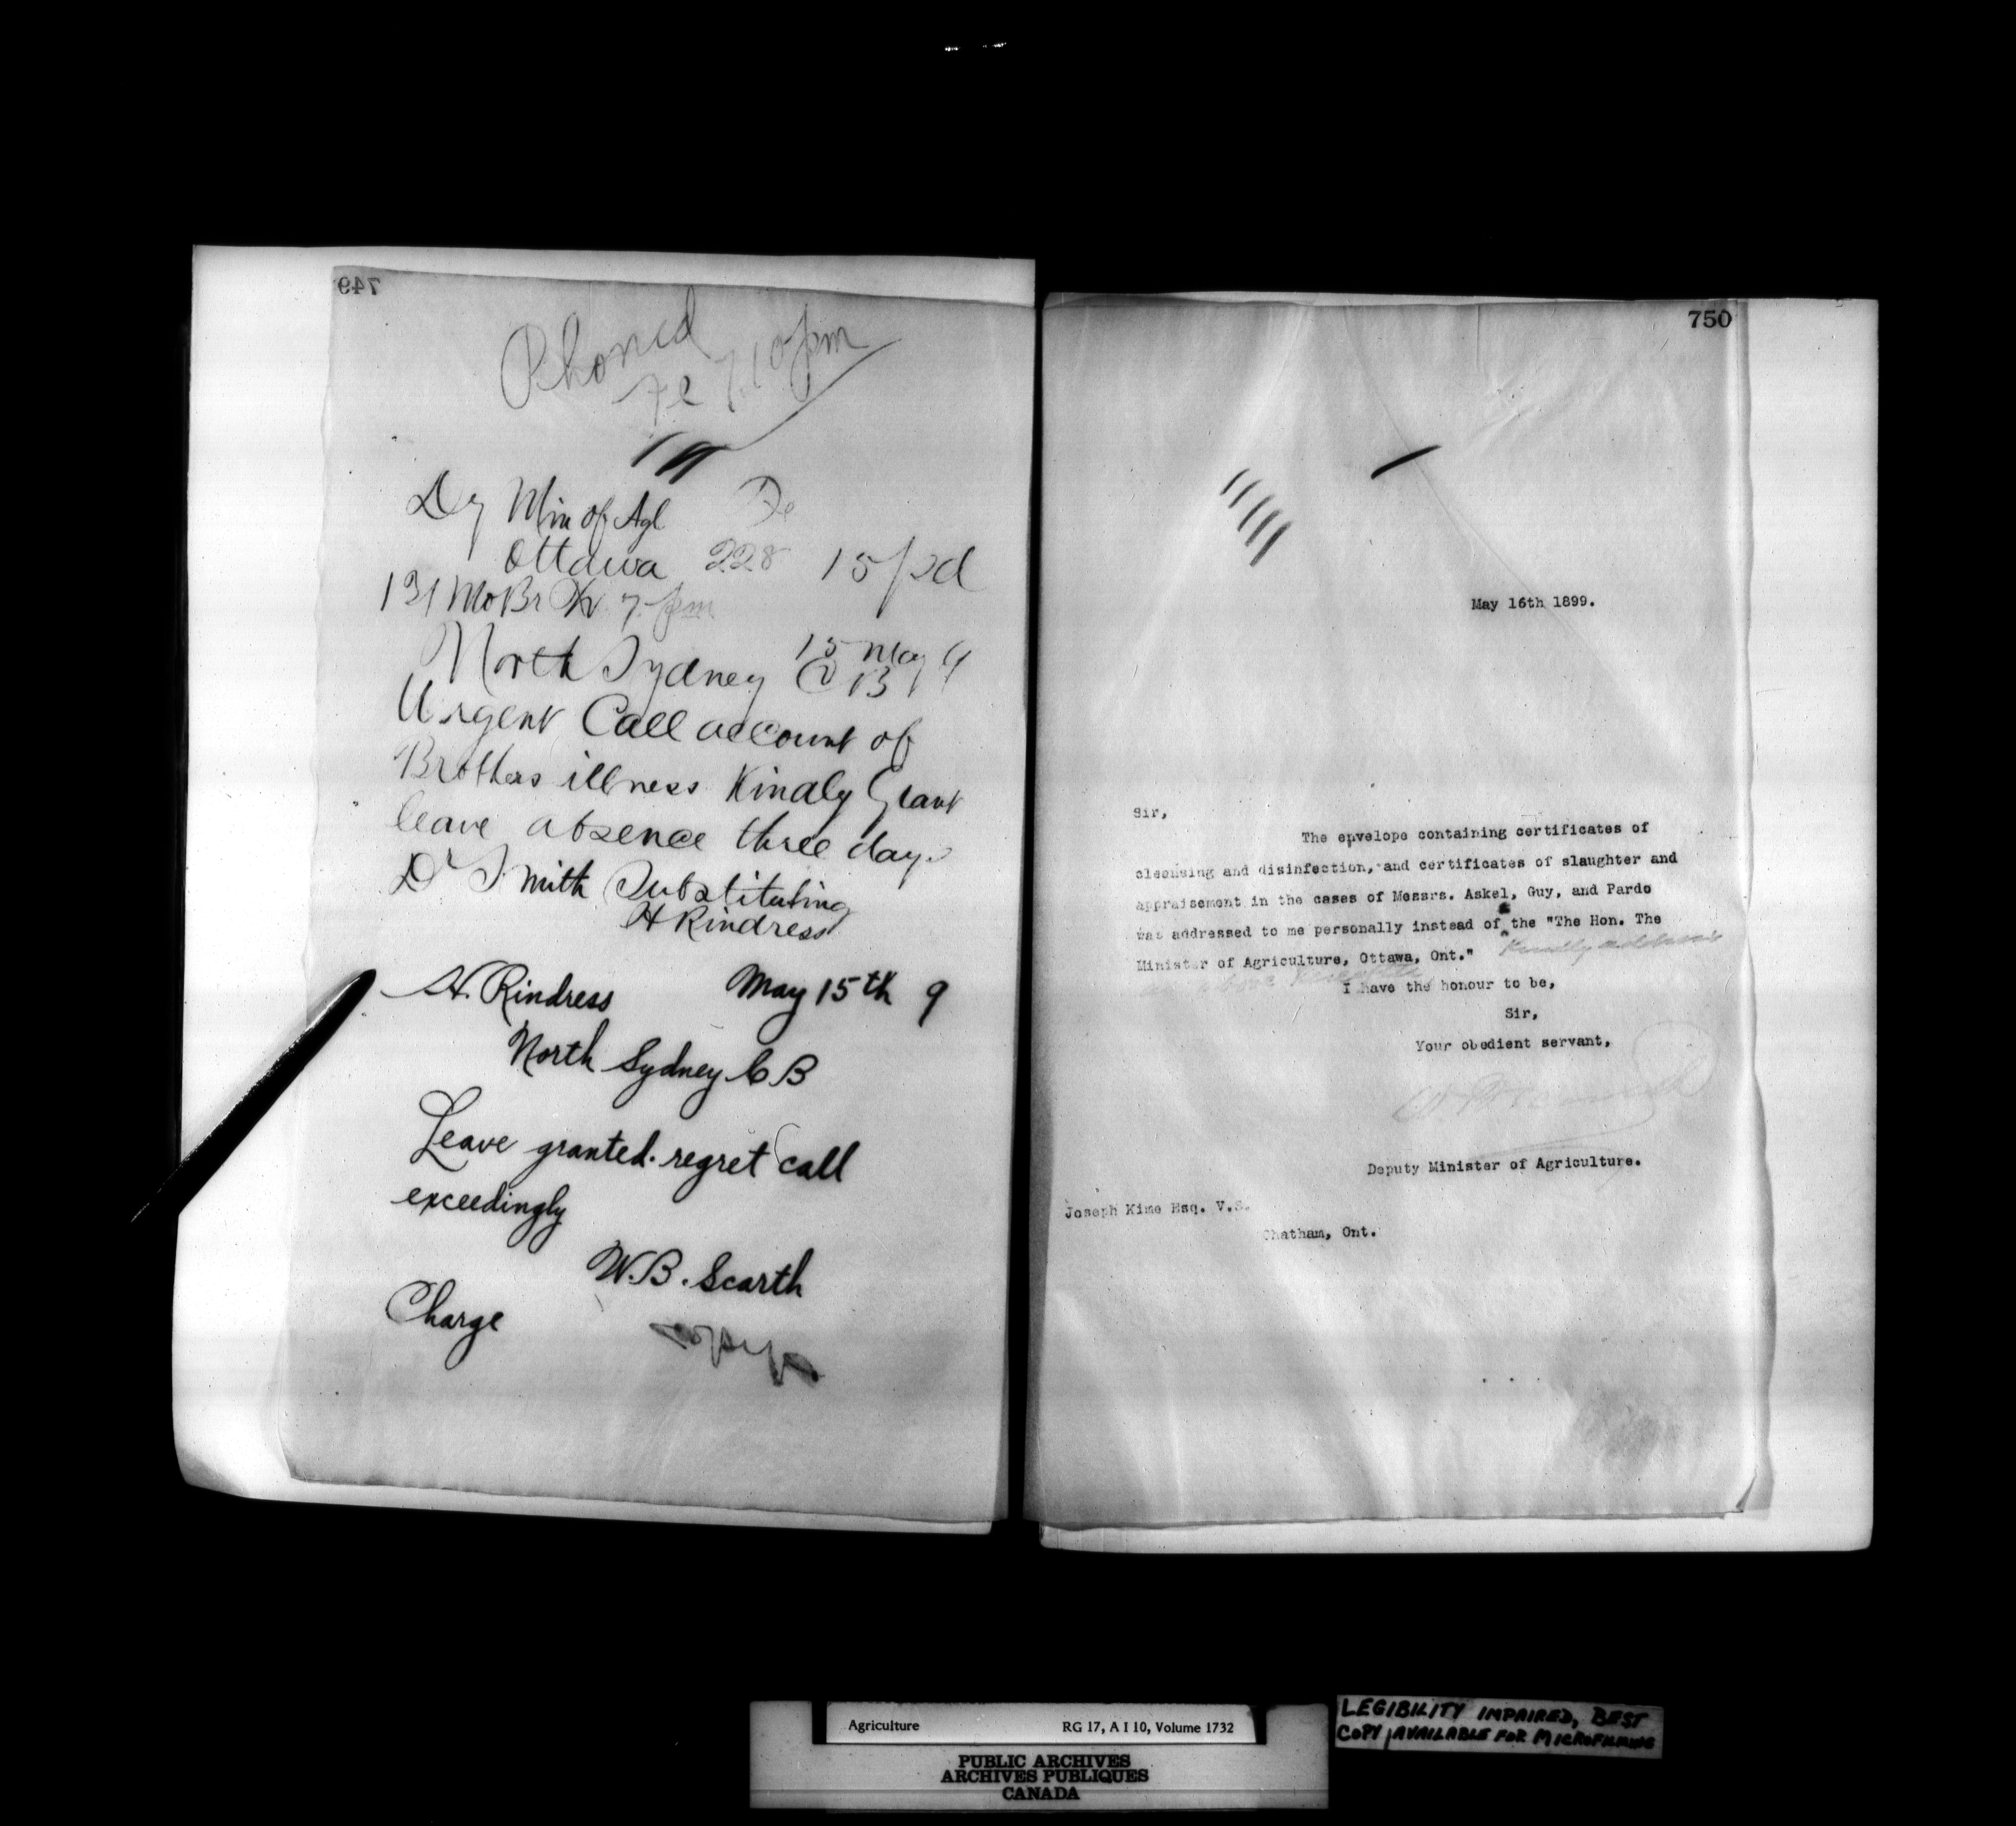 749
Phoned
Fe 7.10 pm
Dy Min of Agl De
Ottawa 228 15 pd
131 Mo Br 7 pm
15 May 9
North Sydney C B
Urgent Call account of
Brothers illness Kindly Grant
leave absence three days
Dr Smith Substituting
H Rindress
H. Rindress May 15th 9
North Sydney C B
Leave granted. regret call
exceedingly
W.B. Scarth
Charge
750
May 16th 1899.
Sir,
The envelope containing certificates of
cleansing and disinfection, and certificates of slaughter and
appraisement in the cases of Messrs. Askel, Guy, and Pardo
was addressed to me personally instead of the "The Hon. The
Minister of Agriculture, Ottawa, Ont." Kindly address
as above
I have the honour to be,
Sir,
Your obedient servant,
Deputy Minister of Agriculture.
Joseph Kime Esq. V.S.
Chatham, Ont.
Agriculture RG 17, A I 10, Volume 1732
PUBLIC ARCHIVES
ARCHIVES PUBLIQUES
CANADA
LEGIBILITY IMPAIRED, BEST
COPY AVAILABLE FOR MICROFILMING